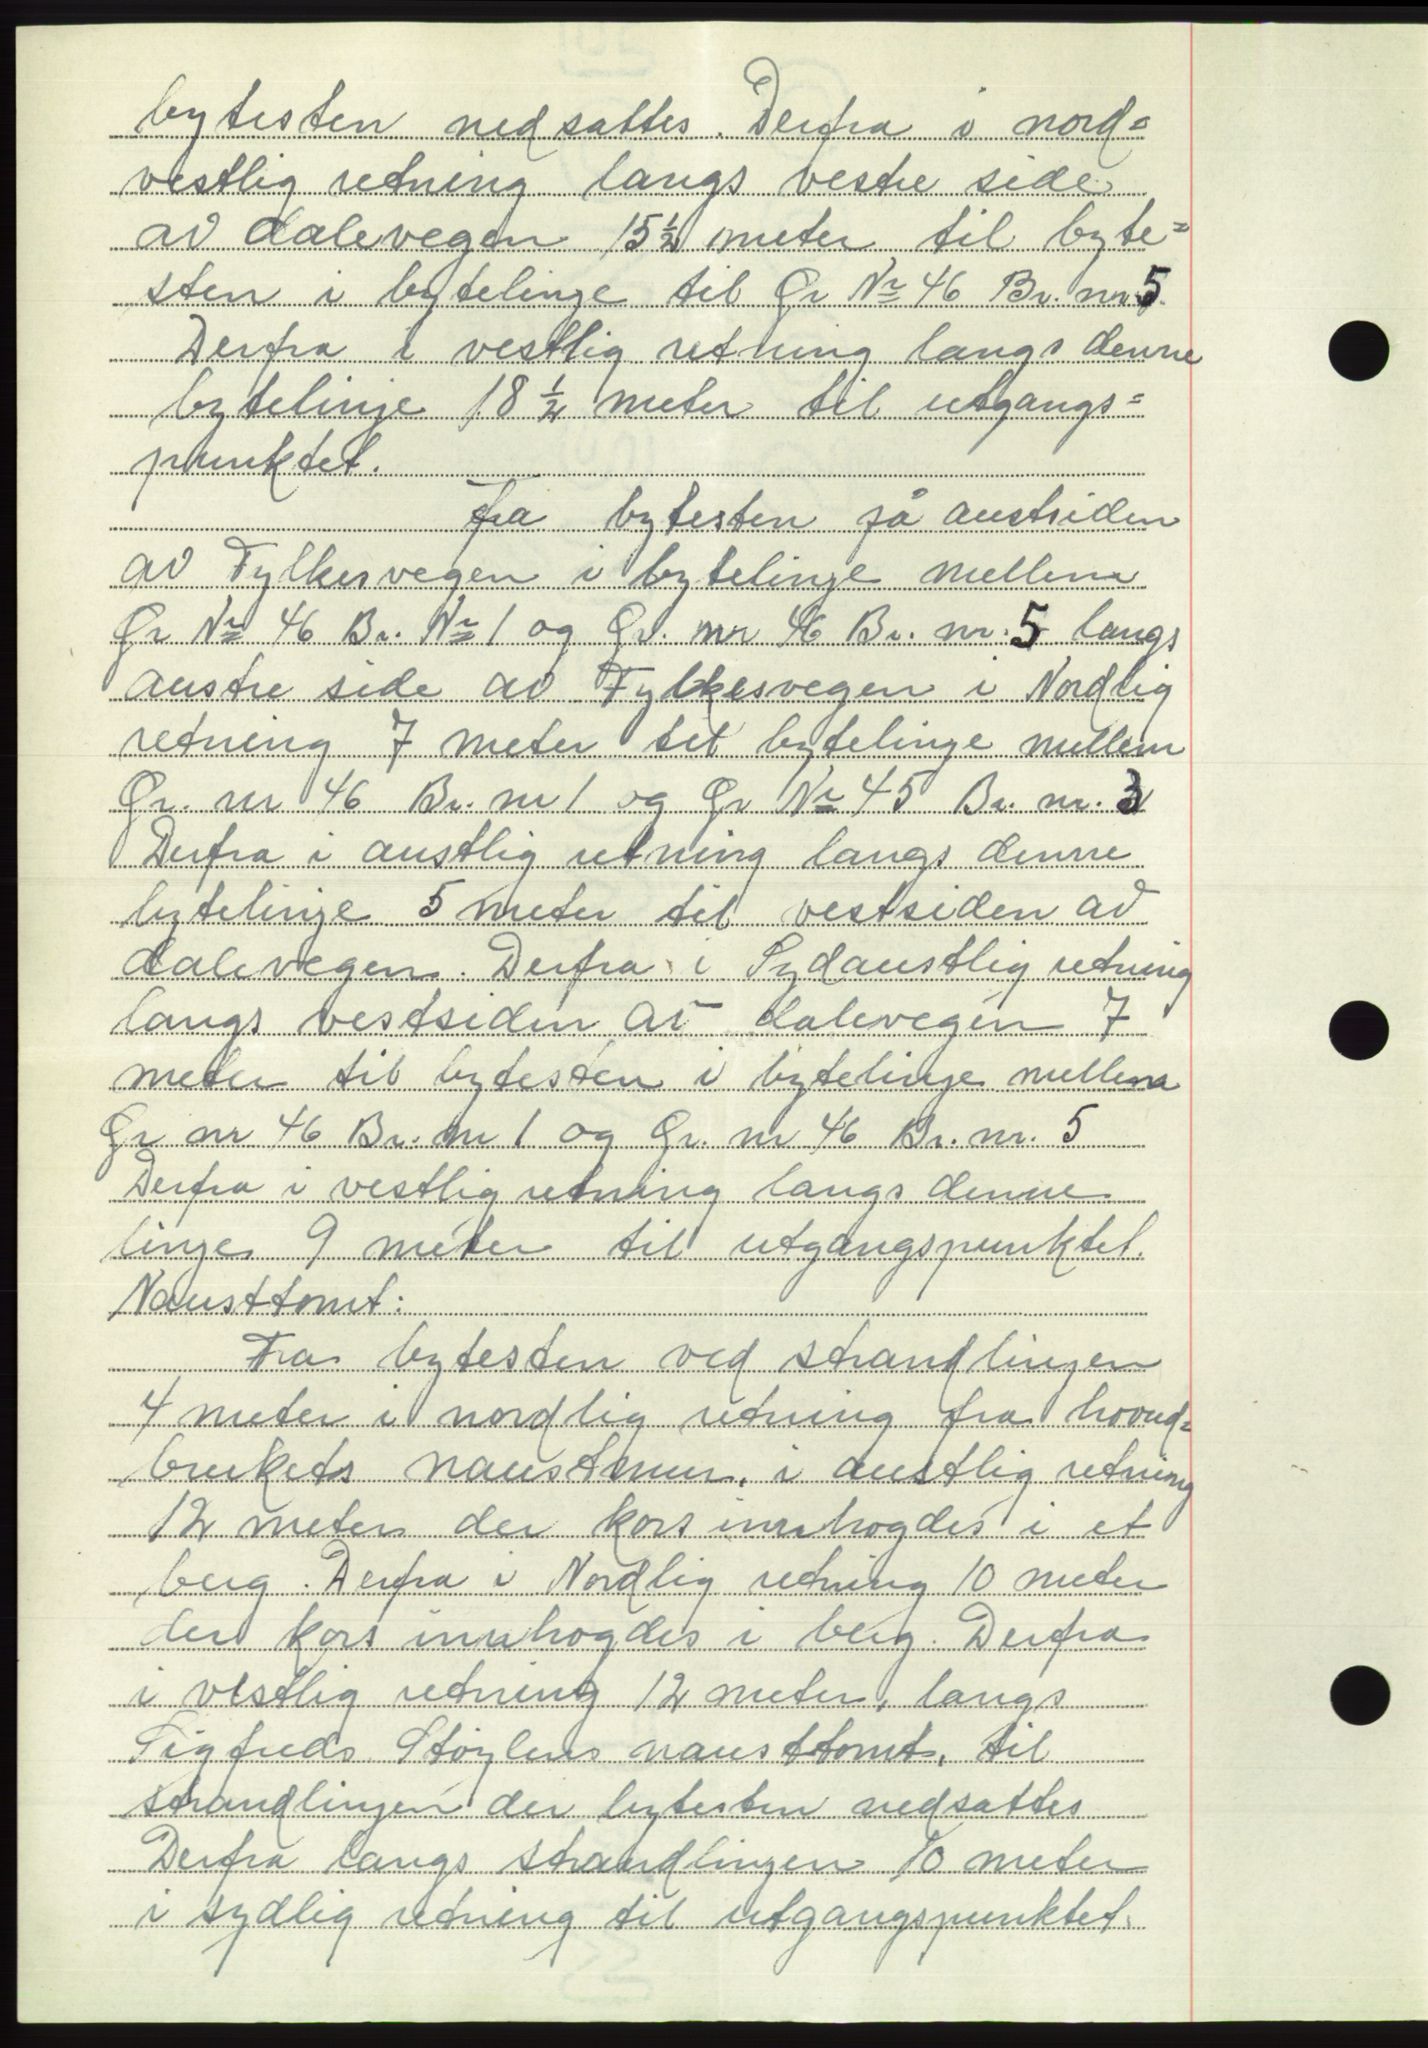 bytesten nedsattes. Derfra i nord=
vestlig retning langs vestre side
av dalevegen 15½ meter til byte=
sten i bytelinje til Gr Nr 46 Br. nr. 5.
Derfra i vestlig retning langs denne
bytelinje 18½ meter til utgangs=
punktet.
Fra bytesten på austsiden
av Fylkesvegen i bytelinje mellem
Gr Nr 46 Br. Nr 1 og Gr. nr 46 Br. nr. 5 langs
austre side av Fylkesvegen i Nordlig
retning 7 meter til bytelinje mellem
Gr. nr 46 Br. nr 1 og Gr Nr 45 Br. nr. 3
Derfra i austlig retning langs denne
bytelinje 5 meter til vestsiden av
dalevegen. Derfra i Sydaustlig retning
langs vestsiden av dalevegen 7
meter til bytesten i bytelinje mellem
Gr nr 46 Br. nr 1 og Gr. nr 46 Br. nr. 5
Derfra i vestlig retning langs denne
linje 9 meter til utgangspunktet.
Nausttomt:
Fra bytesten ved strandlinjen
4 meter i nordlig retning fra hovud=
brukets naustmur, i austlig retning
12 meter der kors innhogdes i et
berg. Derfra i Nordlig retning 10 meter
der kors innhogdes i berg. Derfra
i vestlig retning 12 meter, langs
Sigfreds Støylens nausttomt, til
strandlinjen der bytesten nedsattes
Derfra langs strandlinjen 10 meter
i sydlig retning til utgangspunktet.